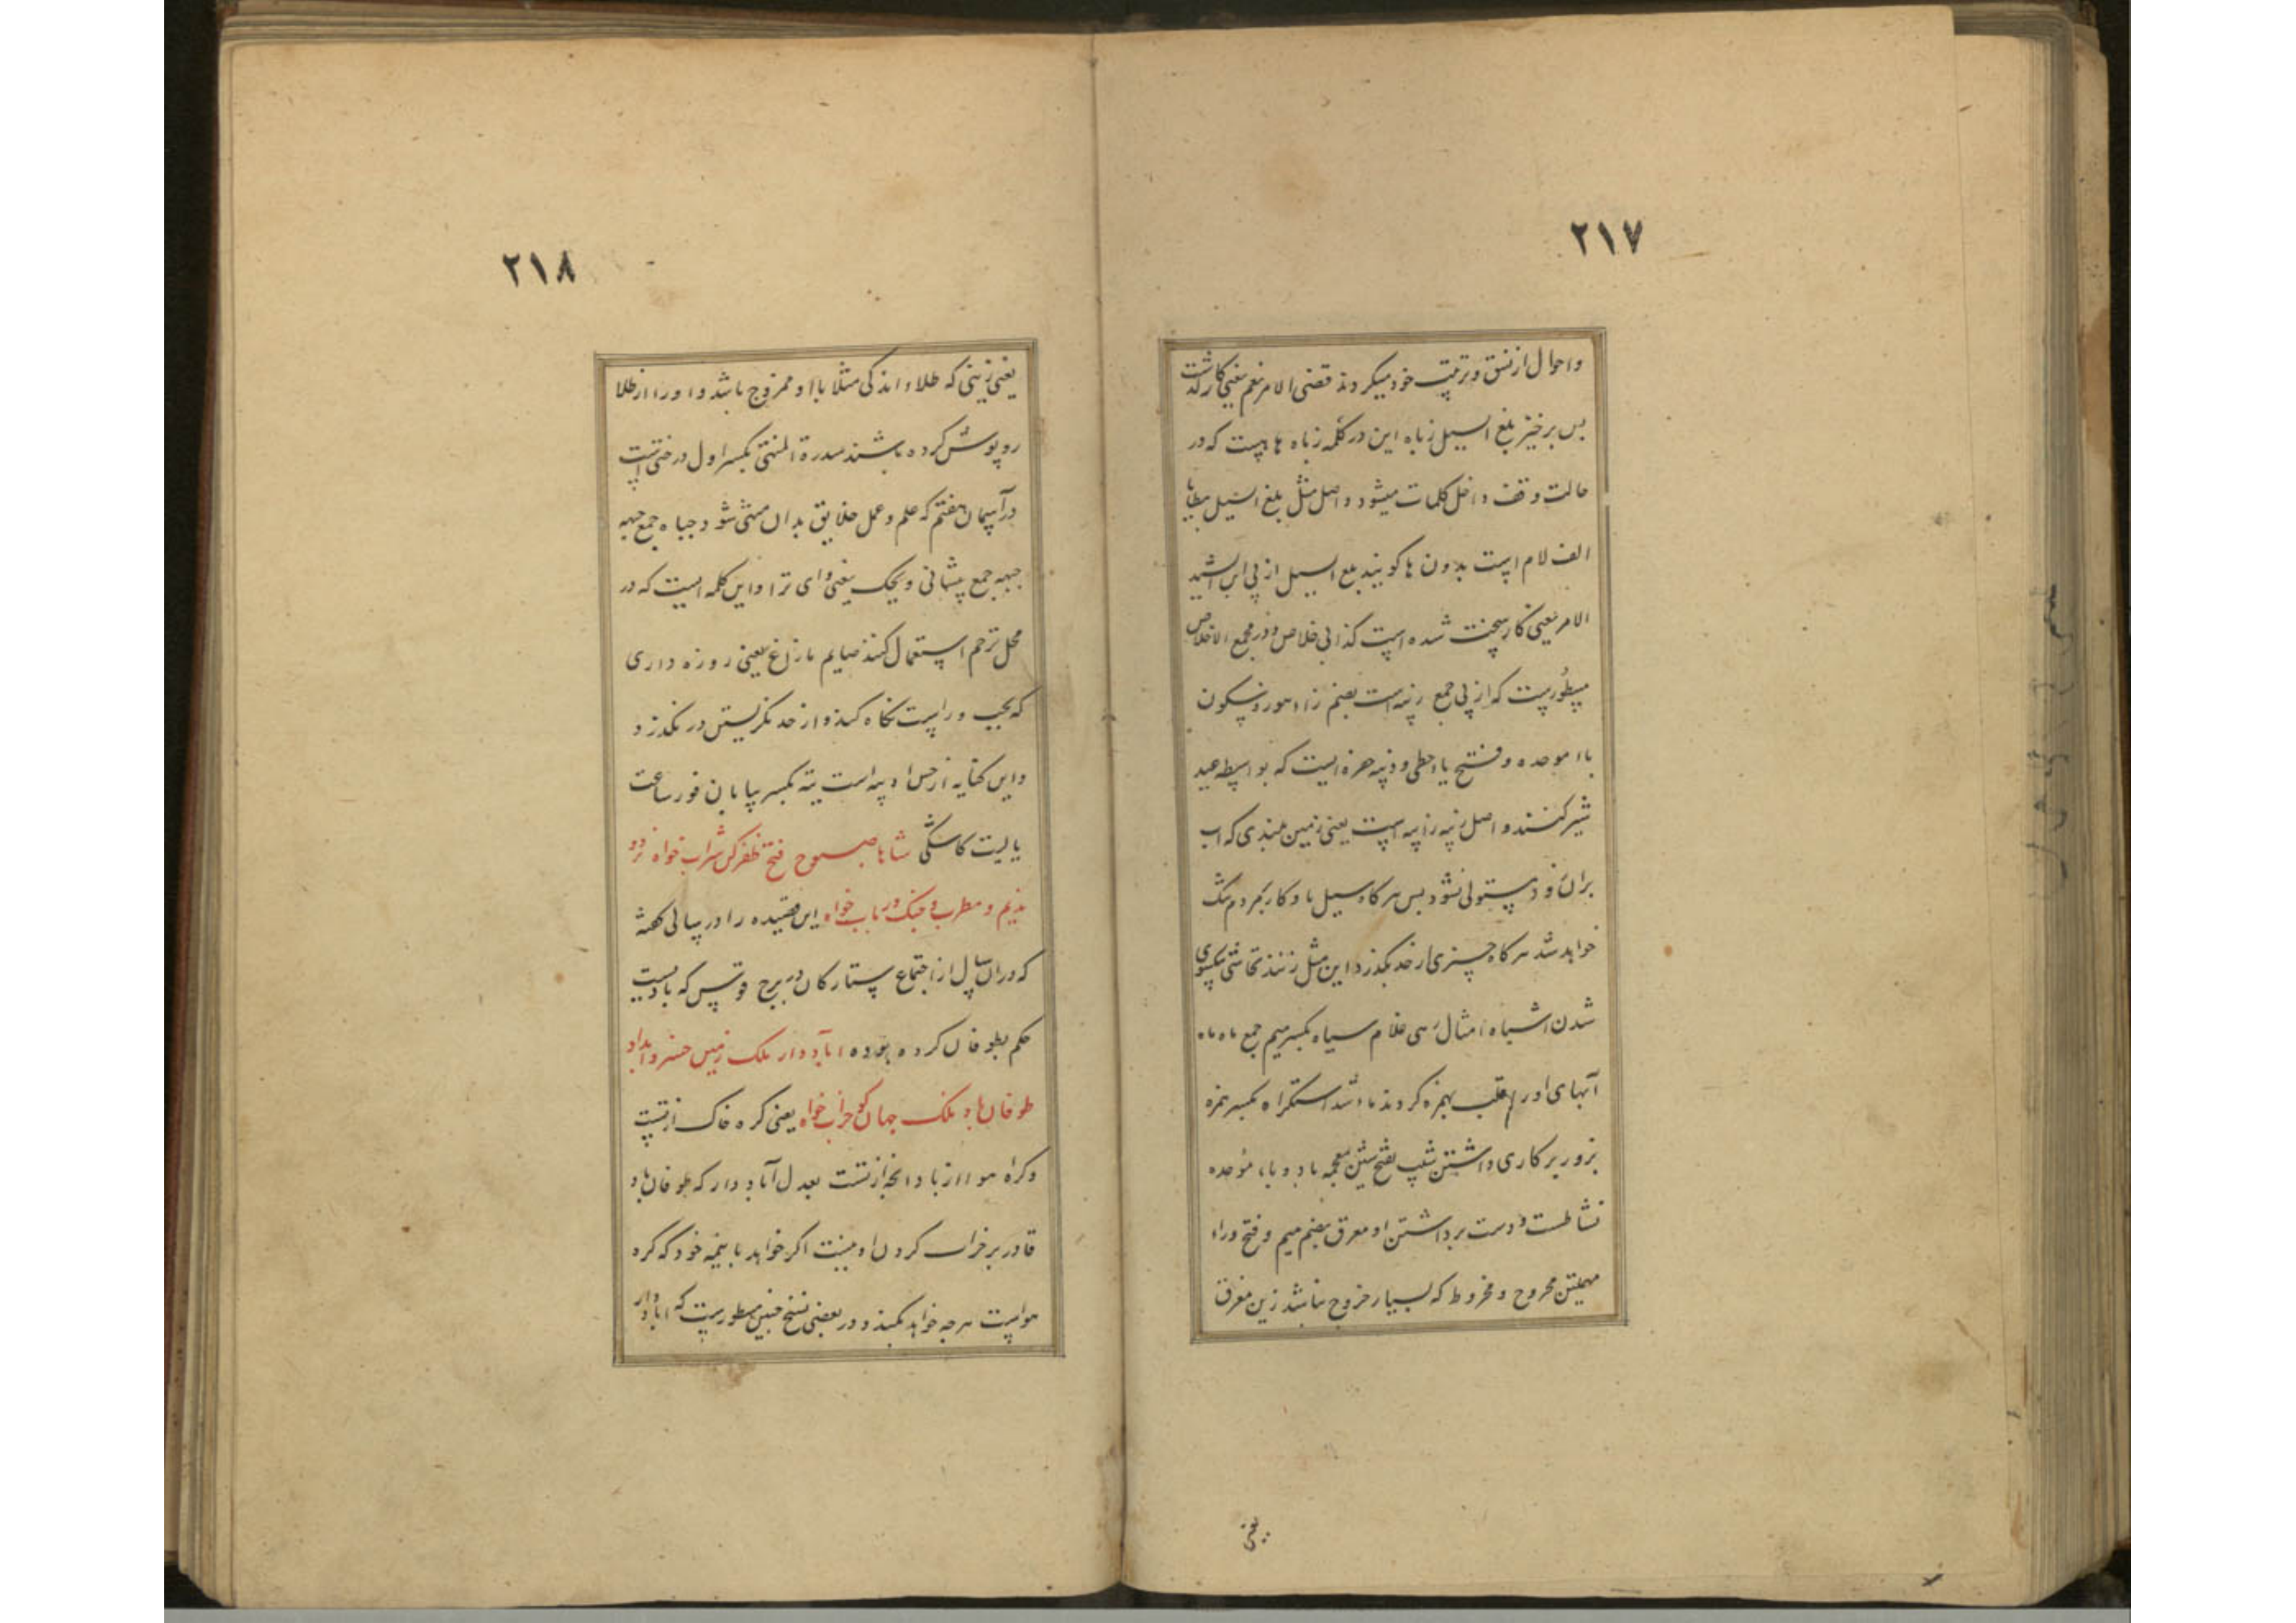 ۲۱۷
واحوال از نسق و ترتیب خود میکردند قضی الامر نعم یعنی کار گذشت
پس برخیز بلغ السیل زباه این در کلمه زباه هاییست که در
حالت وقف داخل کلمات میشود و اصل مثل بلغ السیل
الف لام است بدون ها گویند بلغ السیل از پی این
الامر یعنی کار سخت شده است کذا فی خلاص و در مجمع الاخلاص
مسطورست که از پی جمع زبیه است بضم زا
باا موحده و فتح یا حطی و زبیه حفره ایست که بواسطه صید
شیر کنند و اصل زبیه رابیه است یعنی زمین بلندی که اب
بران مستولی نشود پس هر کاه سیل
خواهد شد هر کاه چیزی از حد بکذرد این مثل زنند تحاشی یکسوی
شدن اشباه امثال رهی غلام سیاه بکسر میم جمع ماه ماه
آبهای او را قلب بهمزه کردند ماا شد استکراه بکسر همزه
بزور بر کاری داشتن شیب بفتح شین معجمه با دو باء موحده
نشاطست و دست برداشتن او معرق بضم میم و فتح وراء
مهملتین مخروج و مخروط که بسیار خروج نباشد زین معرق
یعنی
۲۱۸
یعنی زینتی که طلاء اندکی مثلا باا و ممزوج باشد و اورا از طلا
روپوش کرده باشند سدرة المنتهی بکسر اول درختی است
در آسمان هفتم که علم و عمل خلایق بدان منتهی شود جباه جمع جبهه
جبهه جمع پیشانی ویحک یعنی وای ترا و این کلمه ایست که در
محل ترحم استعمال کنند صایم مازاغ یعنی روزه داری
که بچپ و راست نکاه کند و از حد نکریستن در نکذرد
و این کنایه از حس او یته است یته بکسر بیابان فور ساعت
یا لیت کاشکی شاها صبوح فتح ظفر کن شراب خواه نرد و
ندیم و مطرب و چنک و رباب خواه این قصیده را در سالی کفته
که دران سال از اجتماع ستارکان در برج قوس که بادیست
حکم بطوفان کرده بوده آباد دار ملک زمین خسروا بداد
طوفان باد ملک جهان کو خراب خواه یعنی کره خاک از تست
و کراه هوا از باد انخه از تست بعدل آباد دار که طوفان باد
قادر بر خراب کردن او نیست اکر خواهد با نیمه خود که کره
هواست هر چه خواهد بکند و در بعضی نسخ چنین مسطورست که اباد دار